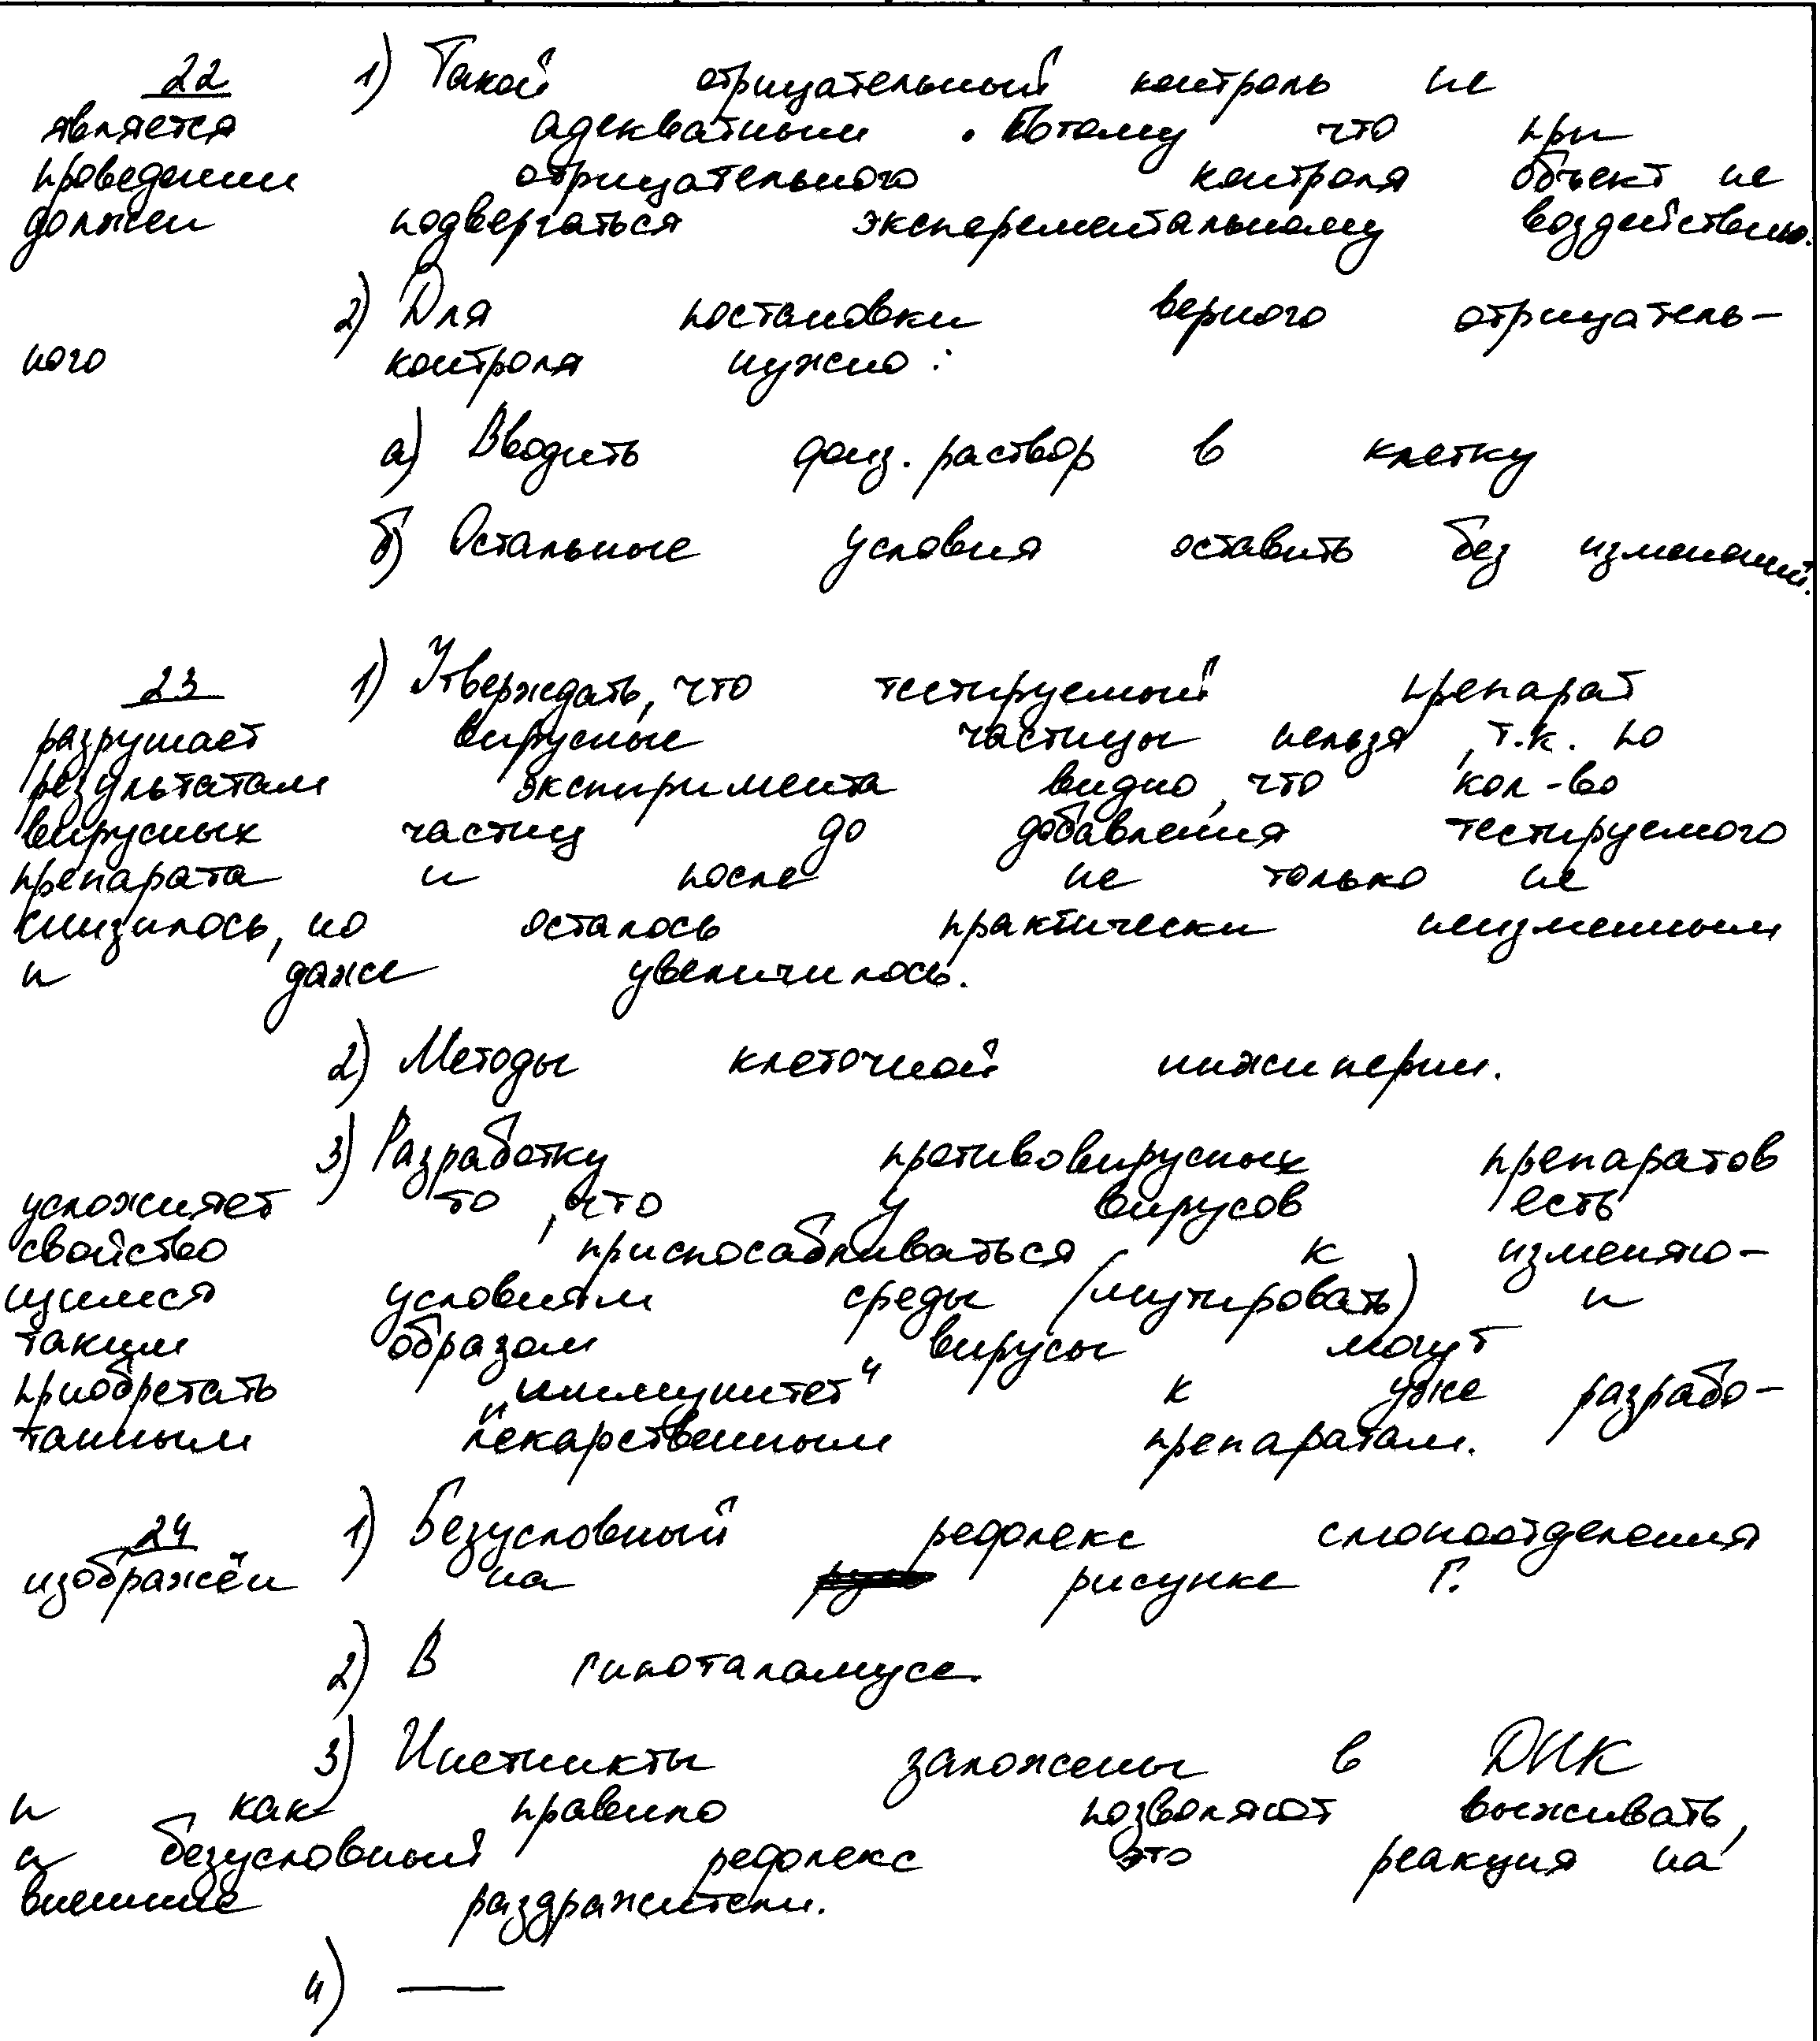 22 1) Такой отрицательный контроль не
является адекватным. Потому что при
проведении отрицательного контроля объект не
должен подвергаться эксперементальному воздействию.
2) Для постановки верного отрицатель-
ного контроля нужно:
а) Вводить физ. раствор в клетку
б) Остальные условия оставить без изменений.
23 1) Утверждать, что тестируемый препарат
разрушает вирусные частицы нельзя, т.к. по
результатам экспиримента видно, что кол-во
вирусных частиц до добавления тестируемого
препарата и после не только не
снизилось, но осталось практически неизменным
и даже увеличилось.
2) Методы клеточной инжинерии.
3) Разработку противовирусных препаратов
усложняет то, что у вирусов есть
свойство приспосабливаться к изменяю-
щимся условиям среды (мутировать) и
таким образом вирусы могут
приобретать „иммунитет“ к уже разрабо-
танным лекарственным препаратам.
24 1) Безусловный рефлекс слюноотделения
изображён на рисунке Г.
2) В гипоталамусе.
3) Инстинкты заложены в ДНК
и как правило позволяют выживать,
а безусловный рефлекс это реакция на
внешние раздражители.
4) —